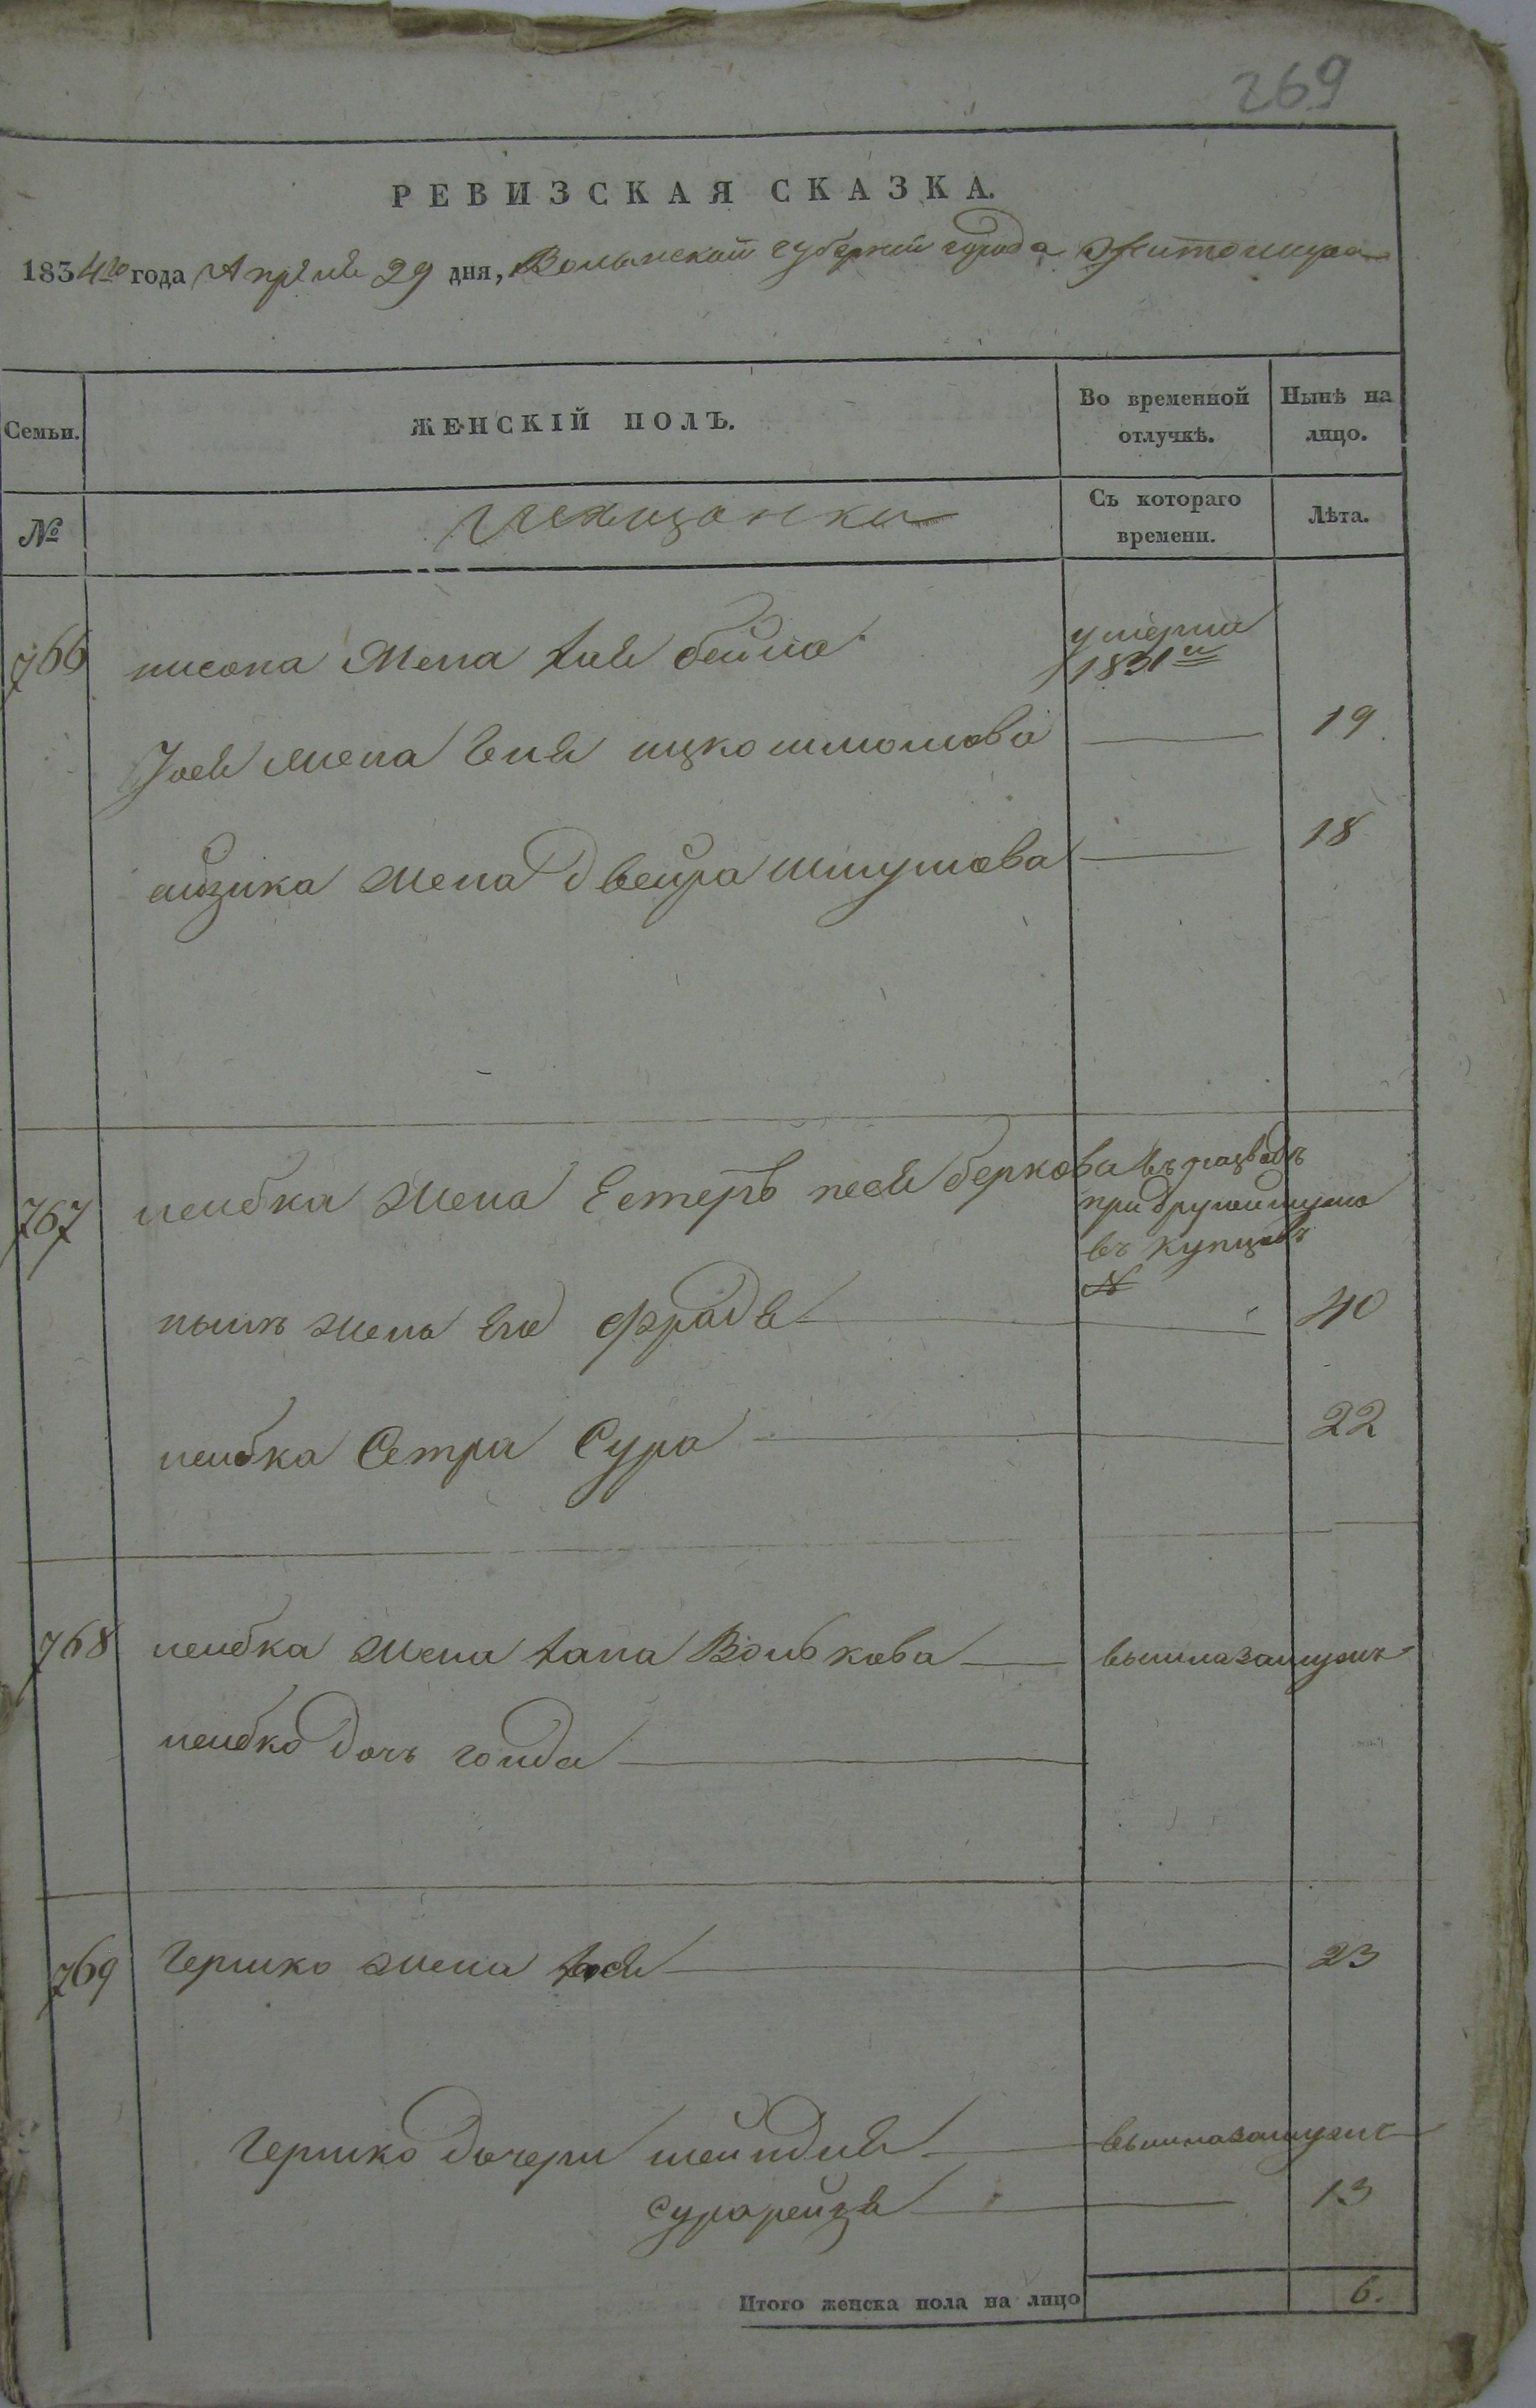 269
РЕВИЗСКАЯ СКАЗКА.
1834го года Апреля 29 дня, Волынской губернии города Житомира
Семьи. ЖЕНСКІЙ ПОЛЪ. Во временной отлучкѣ. Нынѣ на лицо.
№ мещанки Съ котораго времени. Лѣта.
766 жена хая бейла умерла 1831го
жена Геня ицко шмойлова 19
айзика жена Двейра шмулова 18
767 лейбка жена Естеръ песя беркова въ разводѣ
при другом мужа
въ купцовъ
№
ныня жена Его фрада 40
лейбка Сетра Сура 22
768 лейбка жена хана Волькова вышла замужъ
лейбко дочь голда
769 Гершко жена хася 23
Гершко дочери шейндля вышла замужъ
сура рейзя 13
Итого женска пола на лицо 6.